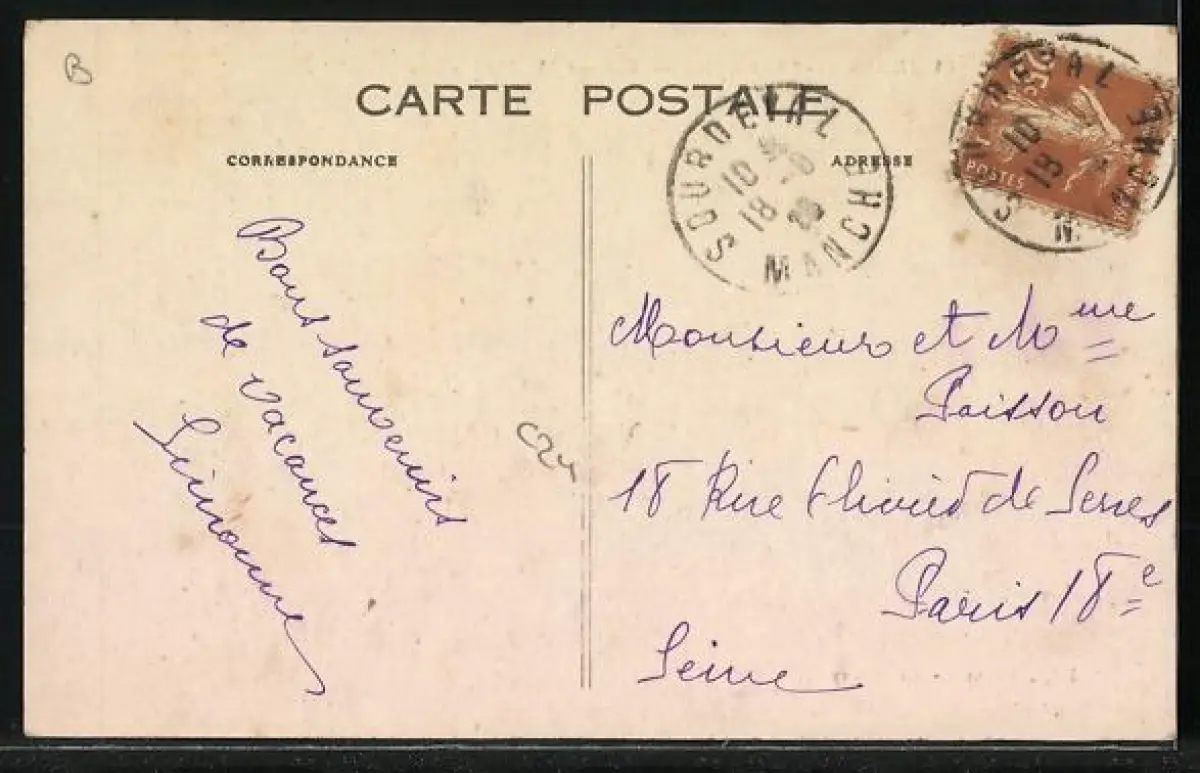 B
CARTE POSTALE
CORRESPONDANCE
ADRESSE
SOURDEVAL
10
18
MANCHE
25
POSTES
Bons souvenirs
de vacances
Simonne
Monsieur et Mme
Poisson
18 Rue Olivier de Serres
Paris 18e
Seine